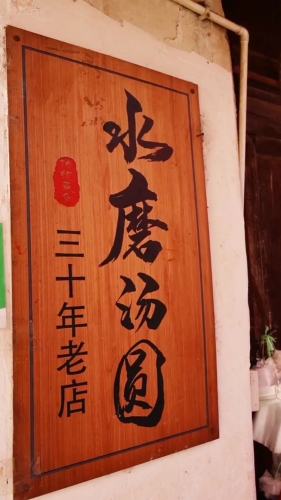 水磨汤圆
三十年老店